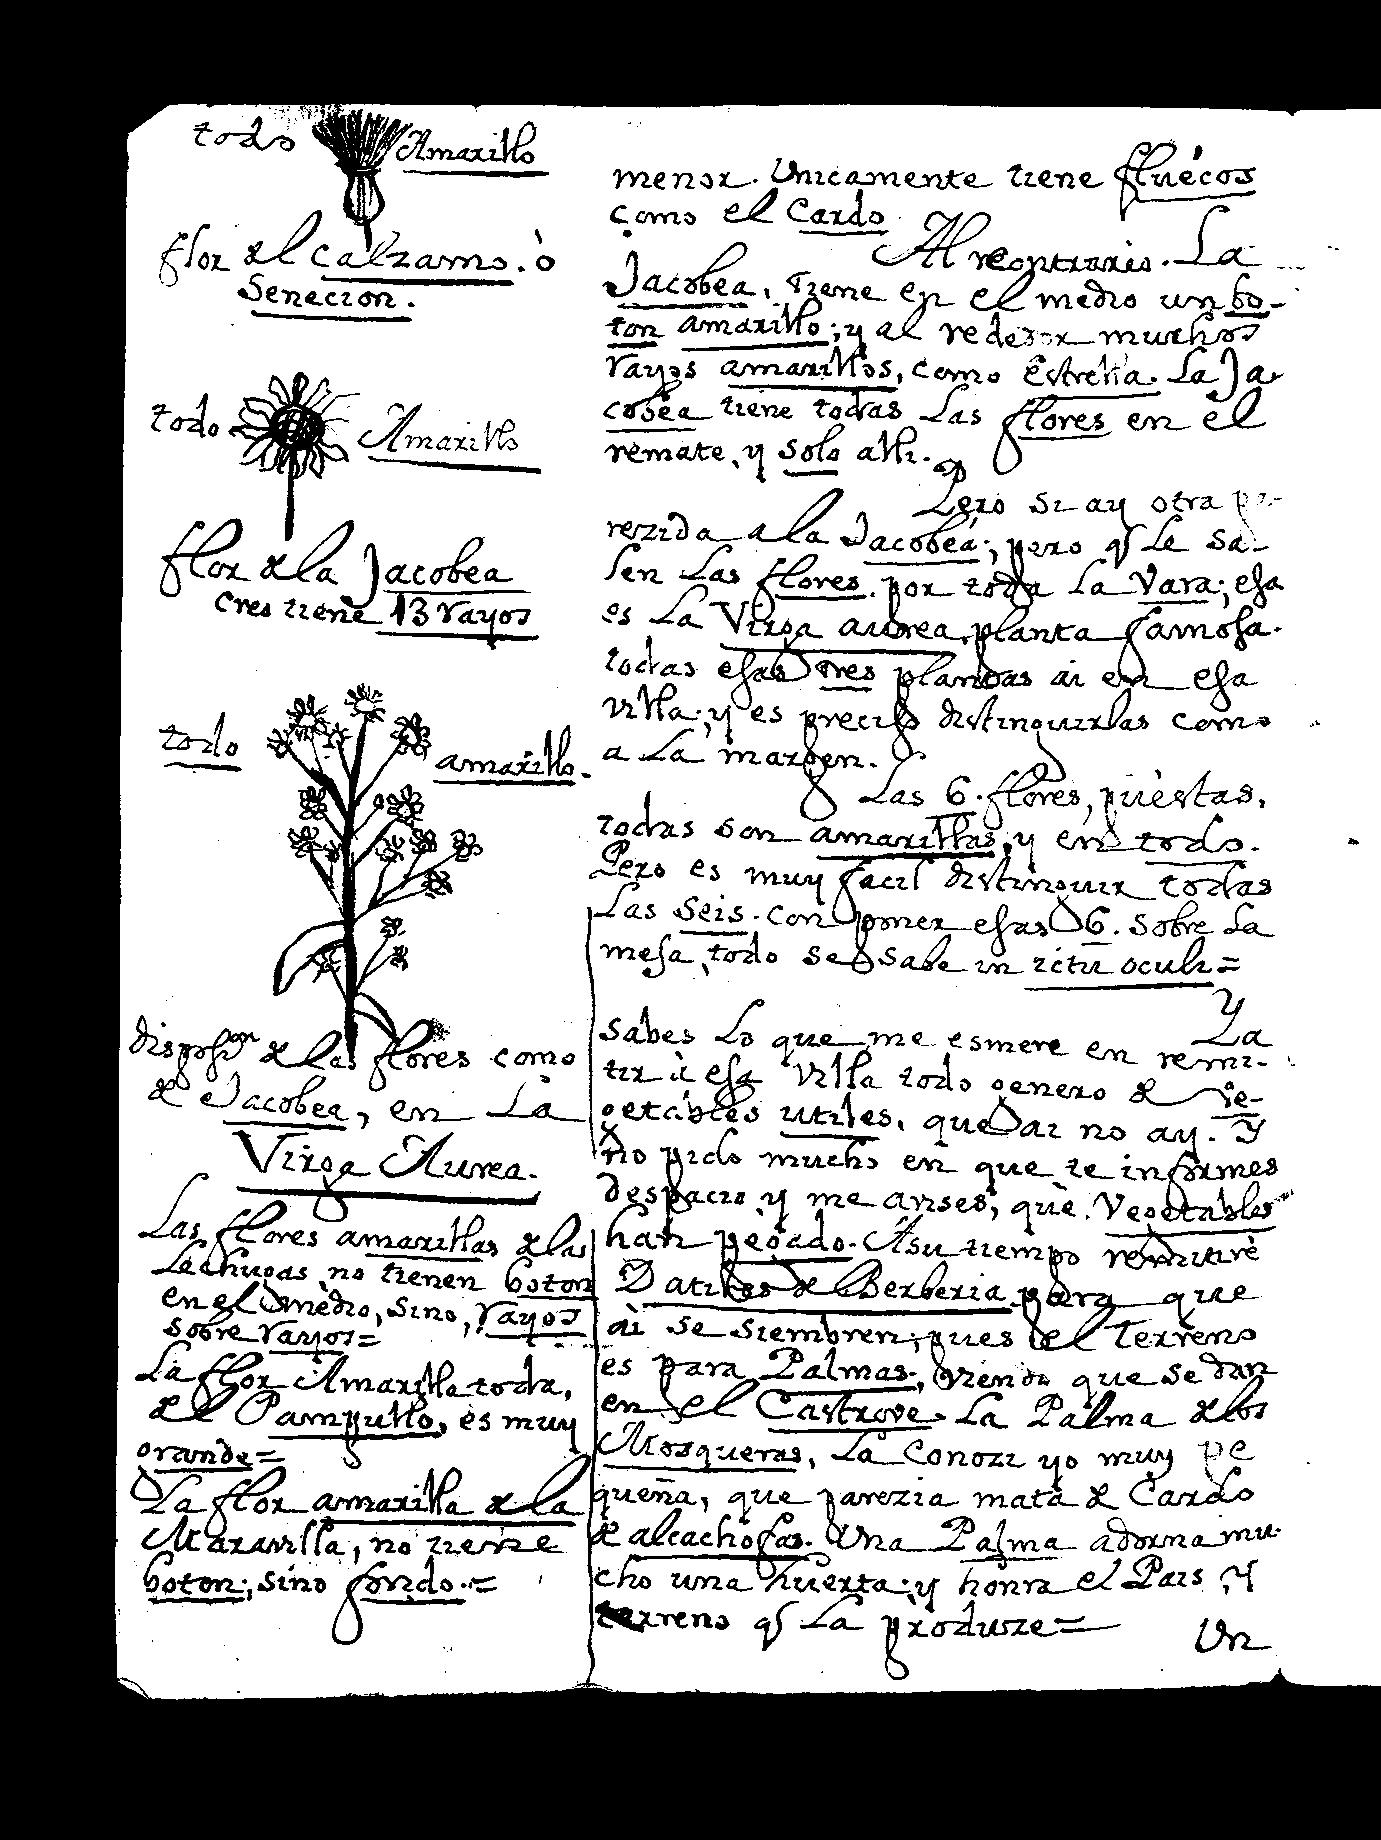 todo Amarillo
flor del Calzamo. ò
Senecion.
todo Amarillo
flor de la Jacobea
Creo tiene 13 rayos
todo amarillo.
disposi.on de las flores como
de Jacobea, en La
Virga Aurea.
Las flores amarillas de las
Lechugas no tienen boton
en el medio, sino, rayos
sobre rayos=
La flor Amarilla toda,
del Pampullo, es muy
grande=
La flor amarilla de la
Maravilla, no tiene
boton; sino fondo.=
menor. Unicamente tiene fluécos
como el Cardo.
Al contrario. La
Jacobea, tiene en el medio un bo-
ton amarillo; y al rededor muchos
rayos amarillos, como Estrella. La Ja-
cobea tiene todas Las flores en el
remate, y solo alli.
Pero si ay otra pa-
rezida a la Jacobea; pero q Le sa-
len Las flores por toda La Vara; esa
es La Virga aurea, planta famosa.
todas esas tres plantas ai en esa
villa; y es preciso distinguirlas como
a La margen.
Las 6. flores, puèstas,
todas son amarillas, y en todo.
Pero es muy facil distinguir todas
Las Seis. con poner esas 6. sobre La
mesa, todo se sabe in ictu oculi=
Ya
sabes Lo que me esmere en remi-
tir à esa Villa todo genero de Ve-
getables utiles, que ai no ay. Y
no pido mucho en que te informes
despacio y me avises, què Vegetables
han pegado. A su tiempo remitirè
Datiles de Berberia para que
ài se siembren, pues el Terreno
es para Palmas, viendo que se dan
en el Castrove. La Palma de los
Mosqueras, La Conozi yo muy pe
queña, que parezia mata de Cardo
de alcachofas. Una Palma adorna mu-
cho una huerta; y honra el Pais, y
terreno q La produze=
Un